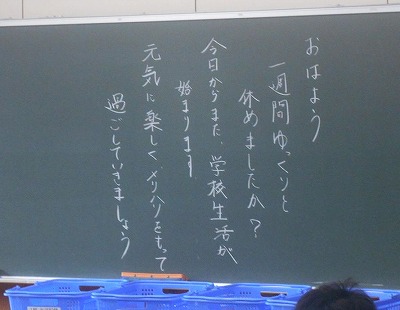 おはよう
一週間ゆっくりと
休めましたか?
今日からまた、学校生活が
始まります
元気に楽しく、メリハリをもって
過ごしていきましょう